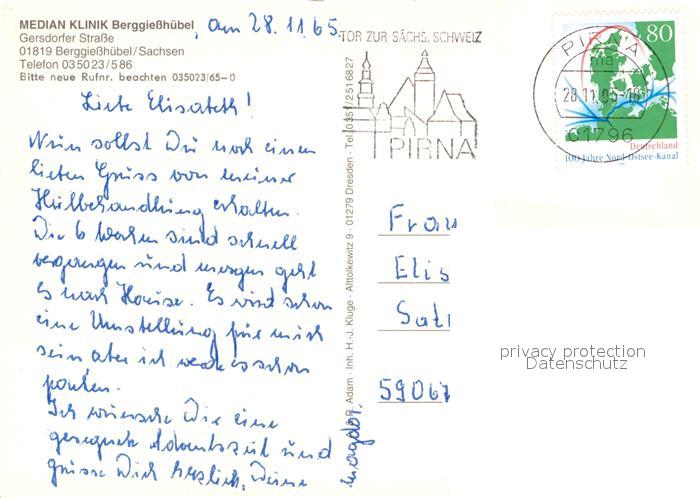 MEDIAN KLINIK Berggießhübel, am 28.11.65.
Gersdorfer Straße
01819 Berggießhübel/Sachsen
Telefon 035023/586
Bitte neue Rufnr. beachten 035023/65-0
Liebe Elisabeth!
Nun sollst Du noch einen
lieben Gruss von meiner
Heilbehandlung erhalten.
Die 6 Wochen sind schnell
vergangen und morgen geht
es nach Hause. Es wird schon
eine Umstellung für mich
sein aber ich werde es schon
packen.
Ich wünsche Dir eine
gesegnete Adventszeit und
grüsse Dich herzlich, Deine
Magdal.
R. Adam · Inh. H.-J. Kluge · Altlokewitz 9 · 01279 Dresden · Tel. 0351/2516827
TOR ZUR SÄCHS. SCHWEIZ
PIRNA
PIRNA
ma
28.11.95-18
01796
80
Deutschland
100 Jahre Nord-Ostsee-Kanal
Frau
Elis
Satl
59067
privacy protection
Datenschutz